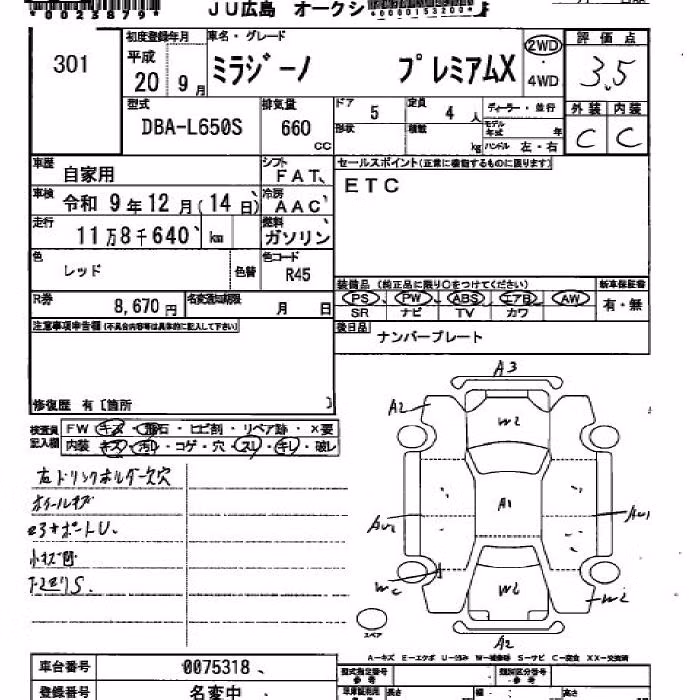 *0023879*
JU広島 オークシ
*0000153200*
301
初度登録年月
平成
20 9 月
車名・グレード
ミラジーノ プレミアムX
2WD
・
4WD
評価点
3.5
型式
DBA-L650S
排気量
660
CC
ドア 5
定員 4 人
形状
積載 kg
ディーラー・並行
モデル年式 年
ハンドル 左・右
外装 内装
C C
車歴
自家用
シフト
FAT
セールスポイント(正業に機動するものに限ります)
ETC
車検
令和 9年 12月(14日)
冷房
AAC
走行
11万8千640 km
燃料
ガソリン
色
レッド
色替
色コード
R45
装備品 (純正品に限り○をつけてください)
新車保証書
PS PW ABS エアB AW
有・無
SR ナビ TV カワ
R券
8,670 円
名変通知期限
月 日
後日品
ナンバープレート
注意事項申告欄(不具合内容等は具体的に記入して下さい)
修復歴 有〔箇所 〕
検査員記入欄
FW キズ・飛石・ヒビ割・リペア跡・×要
内装 キズ・汚れ・コゲ・穴・スレ・キレ・破レ
左ドリンクホルダー欠穴
ホイールキズ
小キズ凹
A3
A2
W2
A1
AU2
AU1
W2
W2
A2
スペア
A－キズ E－エクボ U－凹み W－補修跡 S－サビ C－腐食 XX－交換済
車台番号
0075318
登録番号
名変中
型式指定番号
類別区分番号
長さ
幅
高さ